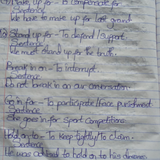 Make up for - To Compensate for
Sentence
We have to make up for lost ground
Stand up for - To defend / Support
Sentence
We must stand up for the truth.
Break in on - To interrupt
Sentence
Do not break in on our conversation
Go in for - To participate / face punished
Sentence
She goes in for Sport Competitions
Hold on to - To keep tightly / To claim -
Sentence
He was advised to hold on to his dreams